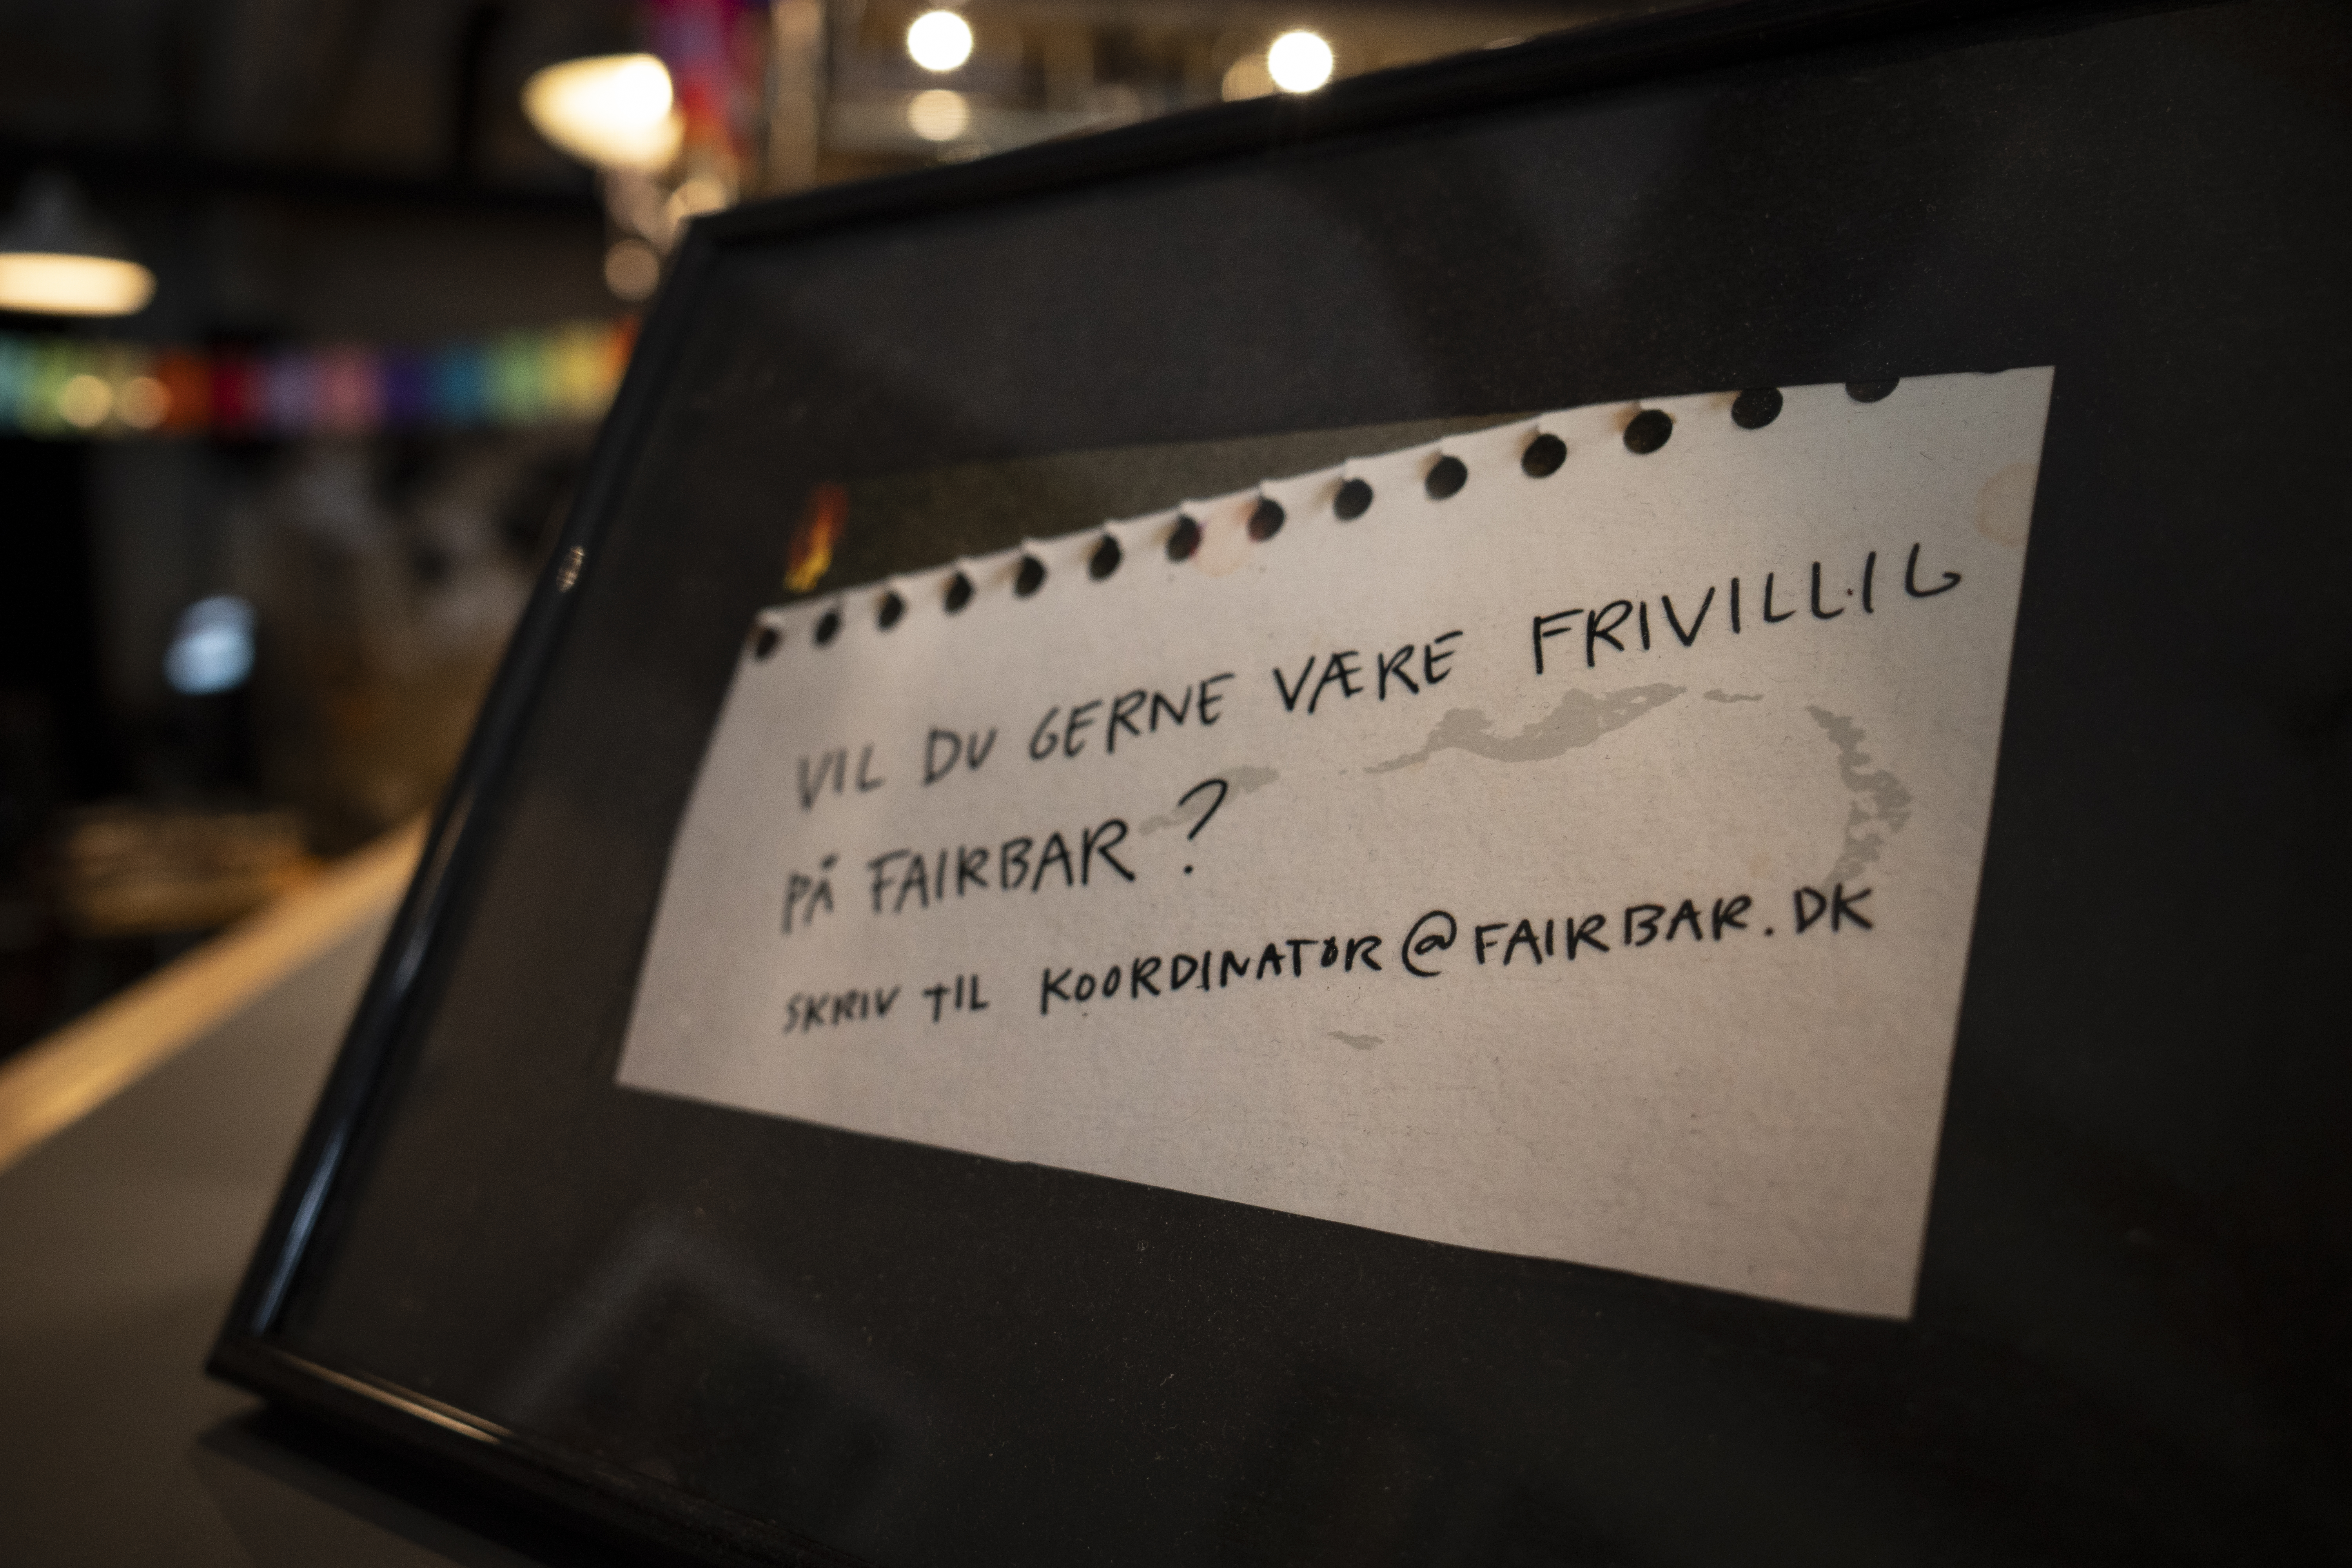 VIL DU GERNE VÆRE FRIVILLIG
PÅ FAIRBAR ?
SKRIV TIL KOORDINATOR@FAIRBAR.DK